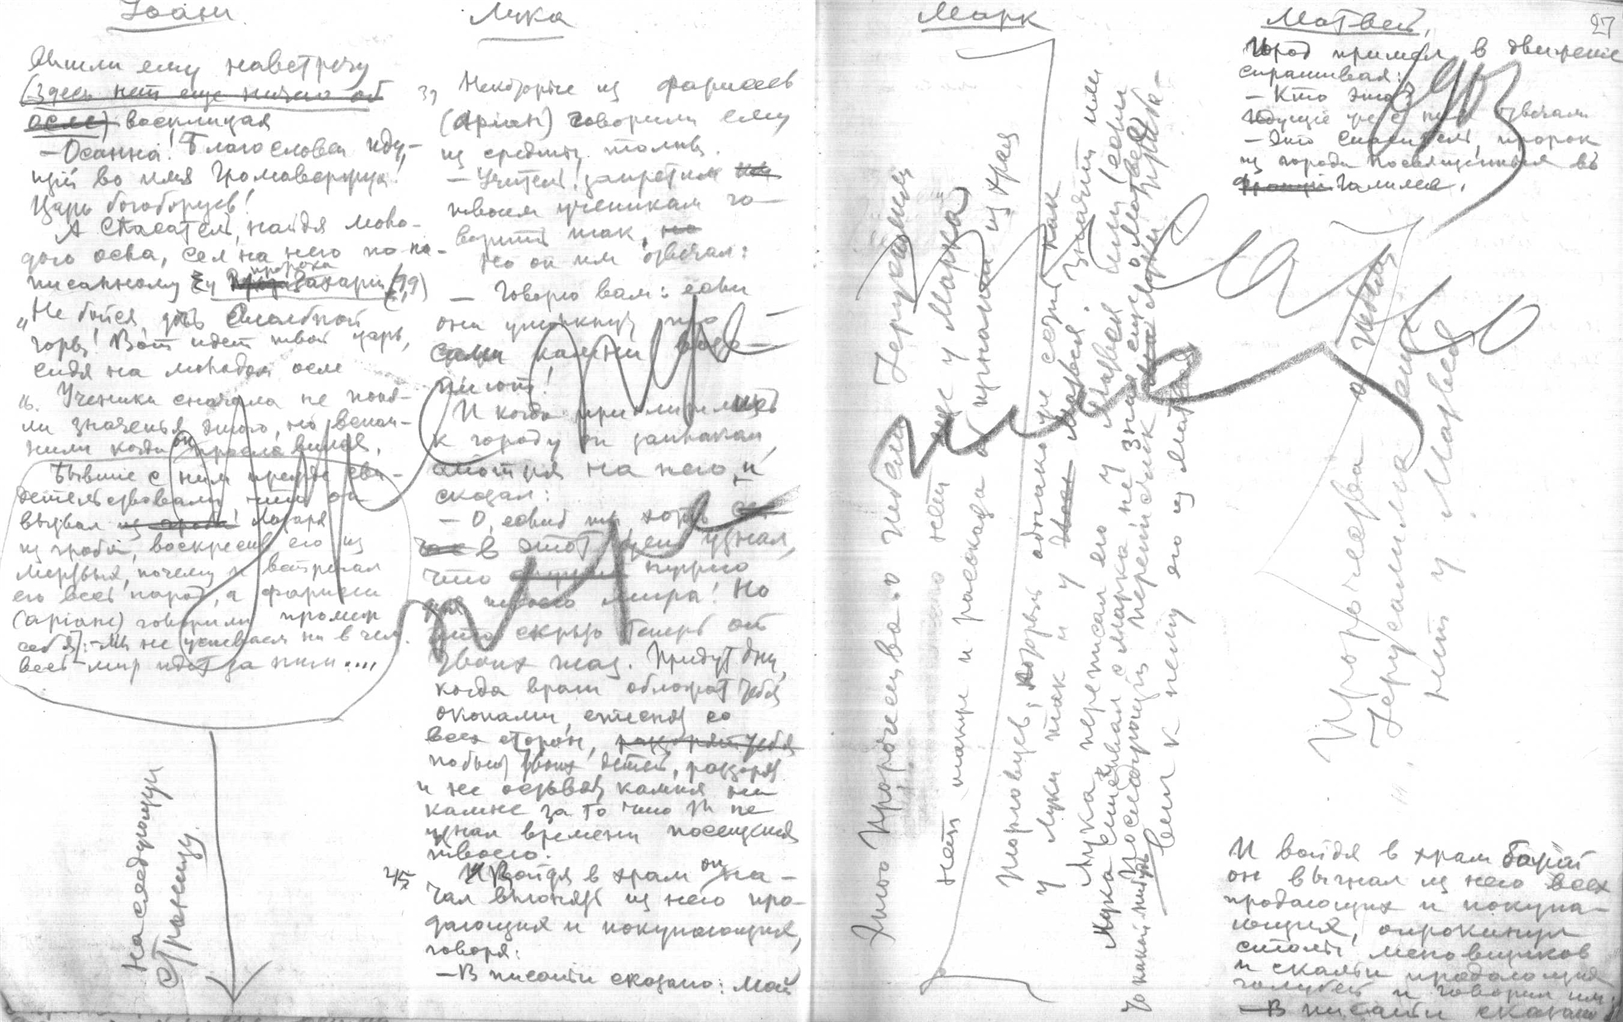 Иоанн
Вышли ему навстречу
(здесь нет еще ничего об
осле) восклицая
— Осанна! Благословен иду-
щий во имя Громовержца!
Царь богоборцев!
А Спаситель, найдя моло-
дого осла, сел на него по на-
писанному у пророка Захарии (9,9)
„Не бойся, дочь
горы! Вот идет твой царь,
сидя на молодом осле
16. Ученики сначала не поня-
ли значенья этого, но вспом-
нили когда он прославился.
Бывшие с ним прежде сви-
детельствовали что он
вызвал из гроба Лазаря
из гроба, воскресив его из
мертвых, почему и встречал
его весь народ, а фарисеи
(аріане) говорили промеж
себя: — Мы не успеваем ни в чем.
весь мир идет за ним....
На следующую
страницу.
Лука
39 Некоторые из фарисеев
(аріан) говорили ему
из средины толпы.
— Учитель, запрети
твоим ученикам го-
ворить так,
Но он им отвечал:
— Говорю вам: если
они умолкнут, то
сами камни возо-
пиют!
И когда приблизились
к городу он заплакал,
смотря на него, и
сказал:
— О, если б ты, хоть
в этот день узнал,
что нужно
для твоего мира! Но
это скрыто теперь от
твоих глаз. Придут дни,
когда враги обложат тебя
окопами, стеснят со
всех сторон, разорят тебя
побьют твоих детей, разорят
и не оставят камня на
камне за то что ты не
узнал времени посещения
твоего.
45 И войдя в храм он на-
чал выгонять из него про-
дающих и покупающих,
говоря:
— В писании сказано: мой
Марк
Этого пророчества о гибели Іерусалима
нет еще у Марка
нет также и рассказа об изгнании из храма
торговцев, который однако же есть так
у Луки так и у Матвея. Значит или
Лука переписал его у Матвея или (если
Лука списывал с Марка не зная еще о Матвее)
последующий переписчик
вил к нему его из Матвея
Матвей.
27
Город пришел в движение
спрашивая:
— Кто это?
— Это спаситель, пророк
из города посвященья в
Галилее.
Пророчества о гибели
Іерусалима
нет у Матвея
И войдя в храм
он выгнал из него всех
продающих и покупа-
ющих, опрокинул
столы меновщиков
и скамьи продающих
голубей и говорил им:
— В писании сказано